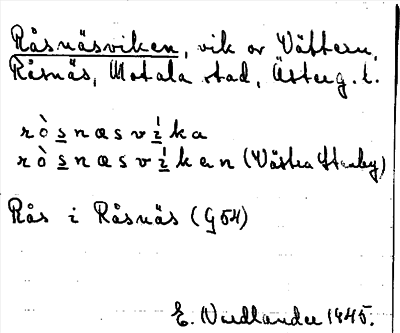 Råsnäsviken, vik av Vättern,
Råsnäs, Motala stad, Österg. l.
rò̱snæsvi̱ka
rò̱snæsvi̱kan (Västra Stenby)
Rås i Råsnäs (G54)
E. Nordlander 1945.